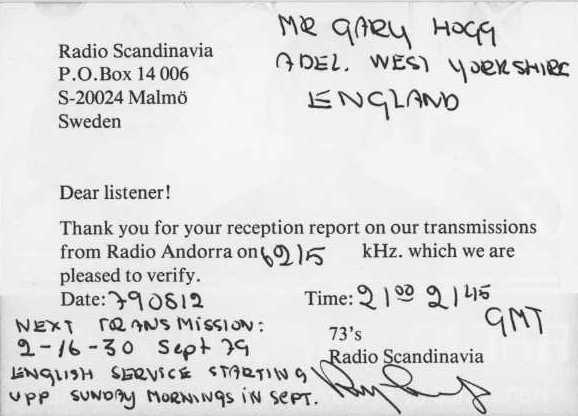 MR GARY HOGG
ADEL. WEST YORKSHIRE
ENGLAND
Radio Scandinavia
P.O.Box 14 006
S-20024 Malmö
Sweden
Dear listener!
Thank you for your reception report on our transmissions
from Radio Andorra on 6215 kHz. which we are
pleased to verify.
Date: 790812 Time: 21⁰⁰ 21⁴⁵ GMT
NEXT TRANSMISSION:
2-16-30 Sept 79
ENGLISH SERVICE STARTING
UPP SUNDAY MORNINGS IN SEPT.
73's
Radio Scandinavia